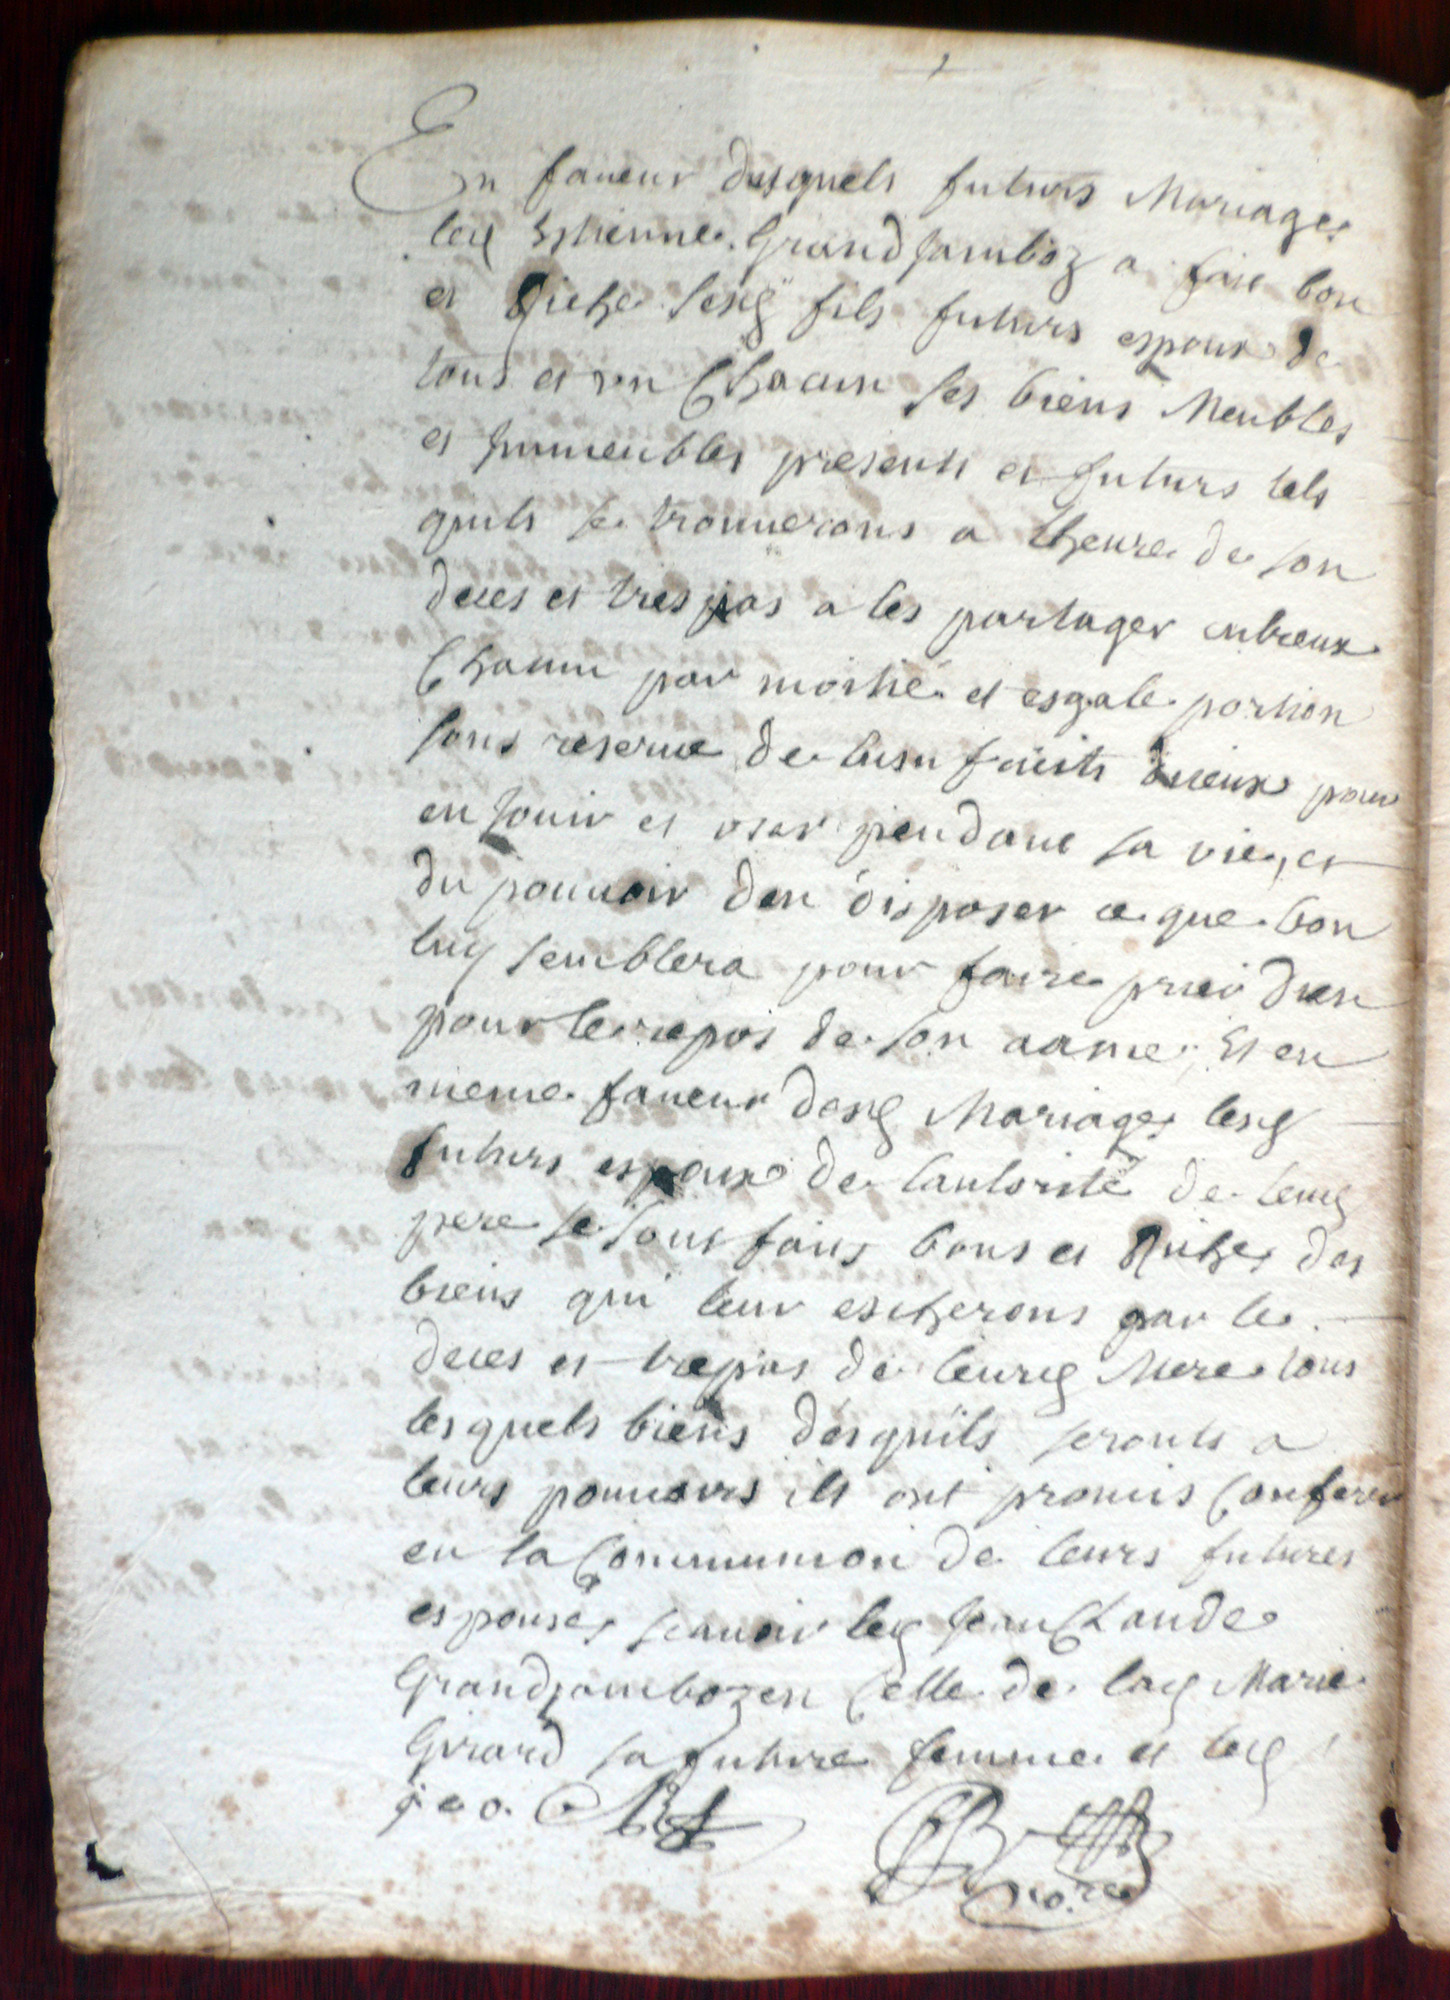 En faueur desquels futurs Mariages
led Estienne Grandjamboz a fait bon
et Riche sesd fils futurs espoux de
tous et vn Chacun ses biens Meubles
et Immeubles presents et futurs tels
quils se trouuerons a lheure de son
deces et trespas a les partager entreux
Chacun par moitié et esgale portion
sous reserue de lusufruits diceux pour
en Jouir et vser pendant sa vie, et
du pouuoir den disposer ce que bon
luy semblera pour faire prier dieu
pour le repos de son aame, Et en
meme faueur desd Mariages lesd
futurs espoux de lautorité de leurd
pere se sont fais bons et Riches des
biens qui leur escherons par le
deces et trepas de leurd Mere tous
lesquels biens desquils seronts a
leurs pouuoirs ils ont promis Conferer
en la Communion de leurs futures
espouses scauoir led Jean Claude
Grandjamboz en Celle de lad Marie
Girard sa future femme et led